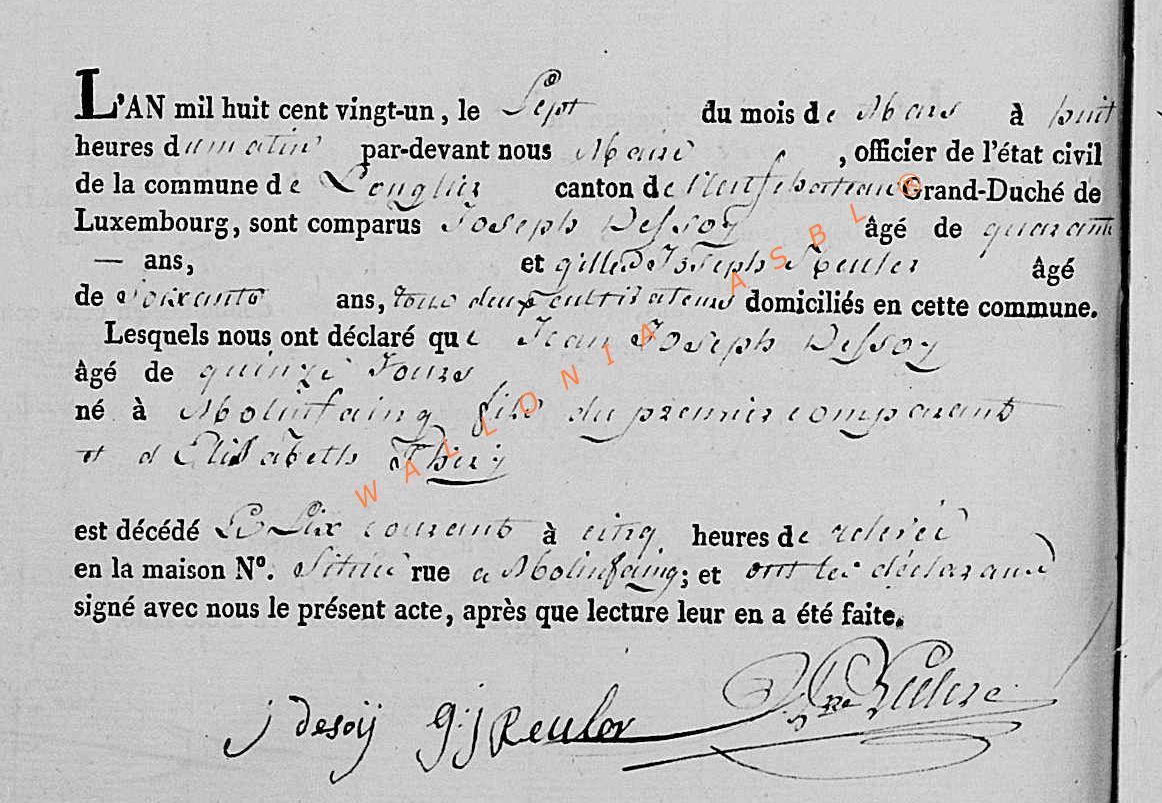 L'AN mil huit cent vingt-un, le Sept du mois de Mars à huit
heures du matin par-devant nous Maire, officier de l'état civil
de la commune de Longlier canton de Neufchateau Grand-Duché de
Luxembourg, sont comparus Joseph Dessoy âgé de quarante
— ans, et Gilles Joseph Reuler âgé
de soixante ans, tous deux cultivateurs domiciliés en cette commune.
Lesquels nous ont déclaré que Jean Joseph Dessoy
âgé de quinze Jours
né à Molinfaing fils du premier comparant
et d'Elisabeth Thiry
est décédé Le Six courant à cinq heures de relevée
en la maison N°. Située rue a Molinfaing; et ont les déclarans
signé avec nous le présent acte, après que lecture leur en a été faite.
j Desoij G:j Reulor
WALLONIA ASBL ©